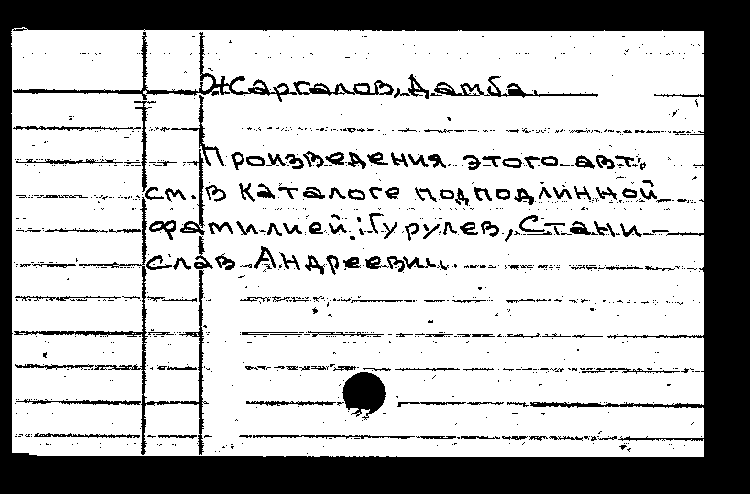 Жаргалов, Дамба.
Произведения этого авт.
см. в каталоге под подлинной
фамилией: Гурулев, Стани-
слав Андреевич.